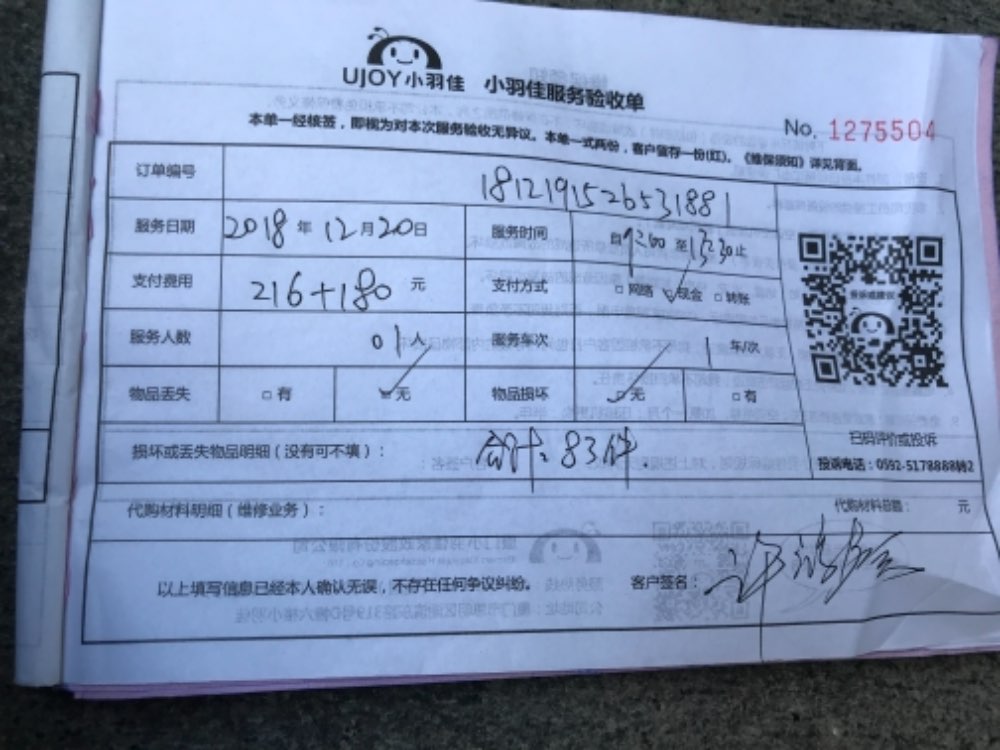 UJOY小羽佳 小羽佳服务验收单
No. 1275504
本单一经核签，即视为对本次服务验收无异议。本单一式两份，客户留存一份(红)。《维保须知》详见背面。
订单编号 1812191526531881
服务日期 2018年12月20日 服务时间 自9:00至13:30止
支付费用 216+180 元 支付方式 □网络 ☑现金 □转账
服务人数 01人 服务车次 1车/次
物品丢失 □有 ☑无 物品损坏 ☑无 □有
损坏或丢失物品明细（没有可不填）： 合计：83件.
扫码评价或投诉
投诉电话：0592-5178888转2
代购材料明细（维修业务）： 代购材料总额： 元
以上填写信息已经本人确认无误，不存在任何争议纠纷。 客户签名：